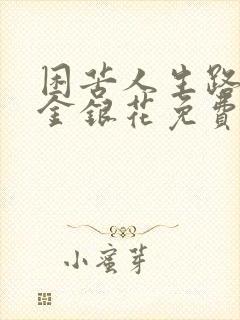 困苦人生路
金银花免費
小蜜芽